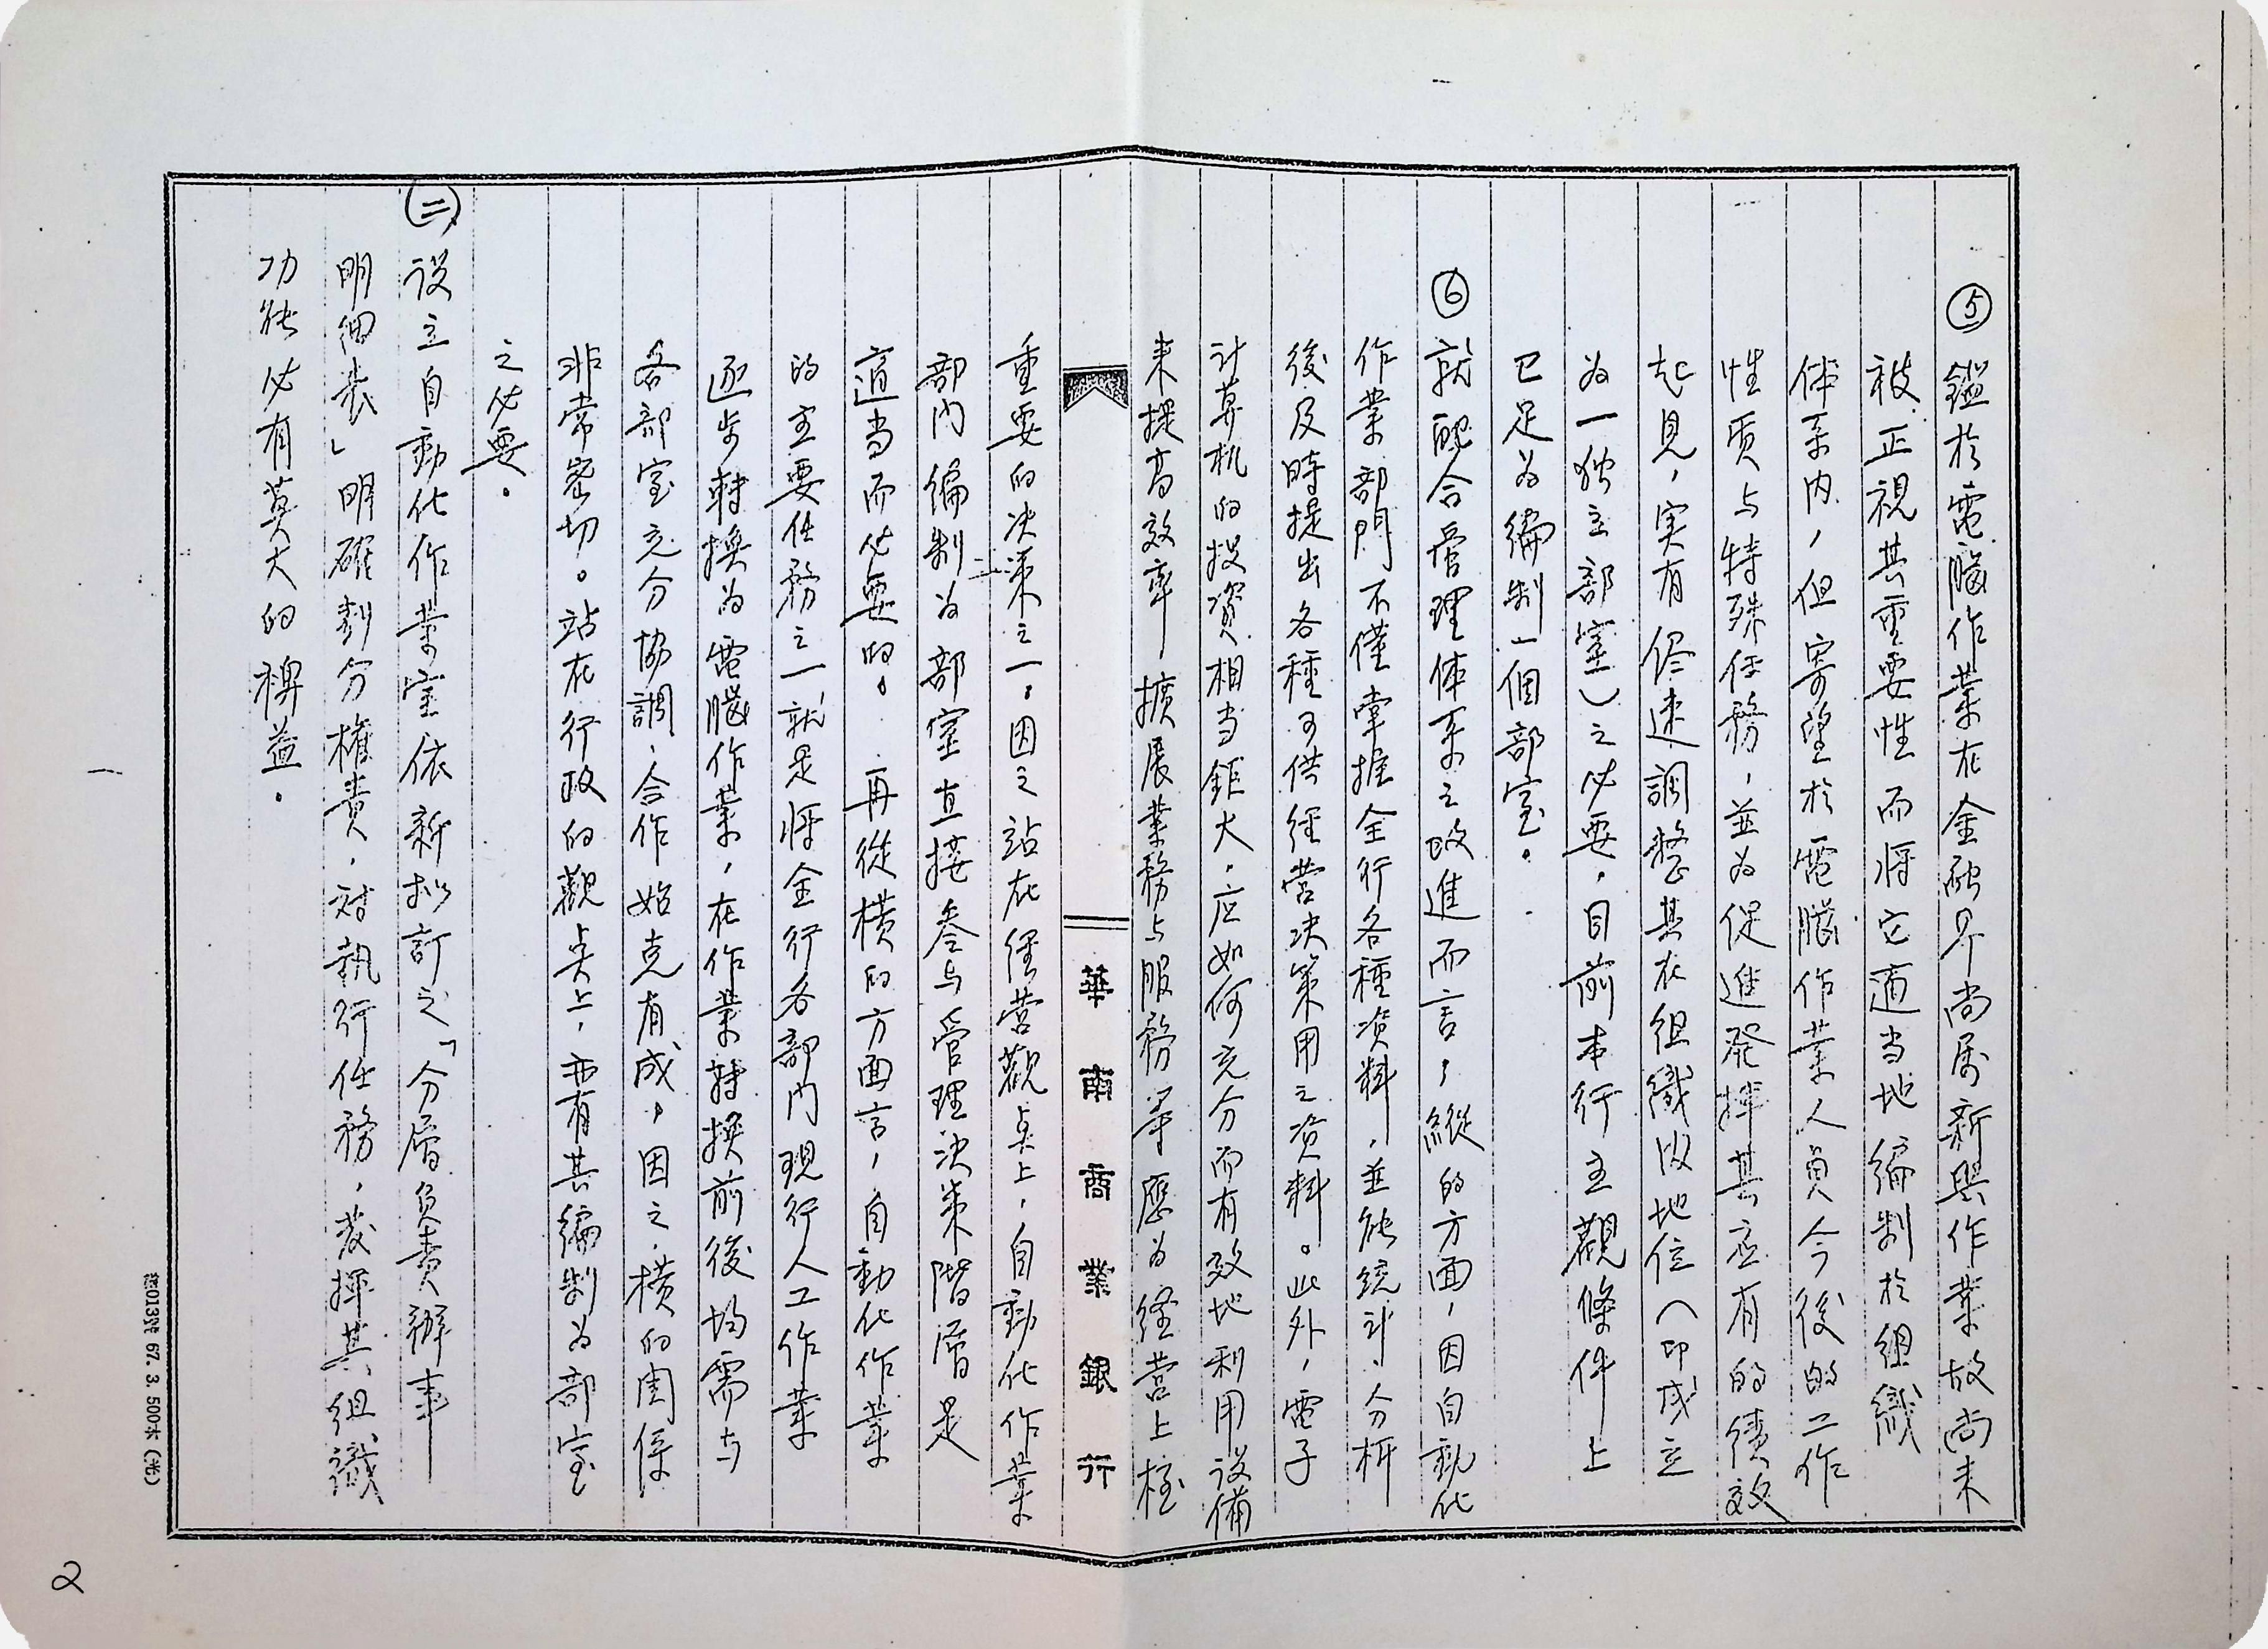 ⑤鑑於電腦作業在金融界尚屬新興作業故尚未
被正視其重要性而将它適当地編制於組織
体系內，但寄望於電腦作業人員今後的工作
性质与特殊任務，並为促進発揮其应有的績效
起見，実有尽速調整其在組織内地位（即成立
为一独立部室）之必要，目前本行主觀條件上
已足为編制一個部室。
⑥就配合管理体系之改進而言，縱的方面，因自動化
作業部門不僅掌握全行各種资料，並能統計、分析
後及時提出各種可供経营决策用之资料。此外，電子
计算机的投资相当鉅大，应如何充分而有效地利用设備
来提高效率，擴展業務与服務等應为経营上極
華南商業銀行
重要的决策之一。因之站在経营觀奌上，自動化作業
部门編制为部室直接參与管理决策階層是
適当而必要的。再從橫的方面言，自動化作業
的主要任務之一就是将全行各部门現行人工作業
逐步轉換为電腦作業，在作業轉換前後均需与
各部室充分協調、合作始克有成，因之橫的関係
非常密切。站在行政的觀奌上，亦有其編制为部室
之必要。
(二)设立自動化作業室依新拟訂之「分層負责辦事
明細表」明確劃分權責，对執行任務，发揮其組織
功能必有莫大的裨益。
67. 3. 500本（米）
2